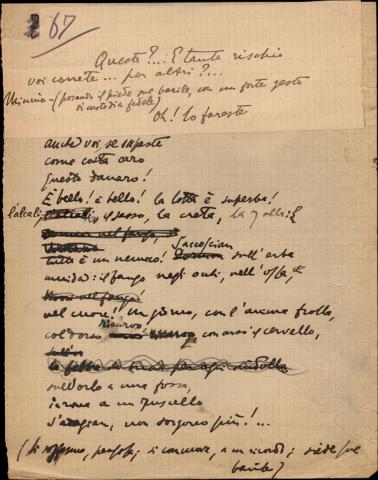 67
Questo?.... E tanto rischio
voi correte... per altri?...
Minnie - (posando il piede sul barile, con un forte gesto
di custodia fedele)
Oh! lo fareste
anche voi, se sapeste
come costa caro
questo danaro!
È bello! è bello! la lotta è superba!
l'alcali, il sasso, la creta, la zolla:
tutto è un nemico! S'accoscian sull'erba
umida: il fango negli occhi, nell'ossa,
nel cuore! Un giorno, con l'anima frolla,
col dorso ricurvo, con arso il cervello,
sull'orlo a una fossa,
in riva a un ruscello
s'adagian, non sorgono più!...
(si sofferma, pensosa; si commuove, a un ricordo; siede sul
barile)